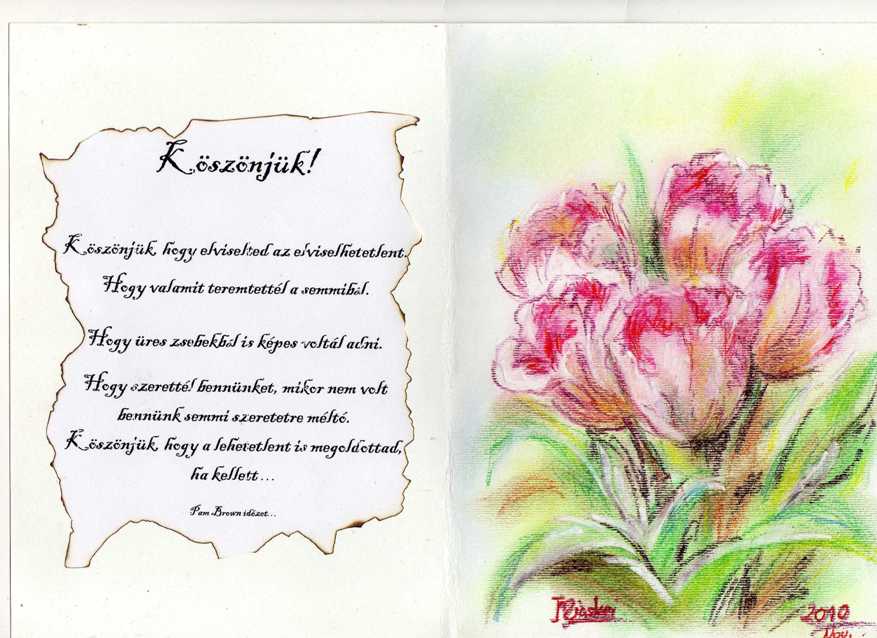 Köszönjük!
Köszönjük, hogy elviselted az elviselhetetlent.
Hogy valamit teremtettél a semmiből.
Hogy üres zsebekből is képes voltál adni.
Hogy szerettél bennünket, mikor nem volt
bennünk semmi szeretetre méltó.
Köszönjük, hogy a lehetetlent is megoldottad,
ha kellett...
Pam Brown idézet...
2010